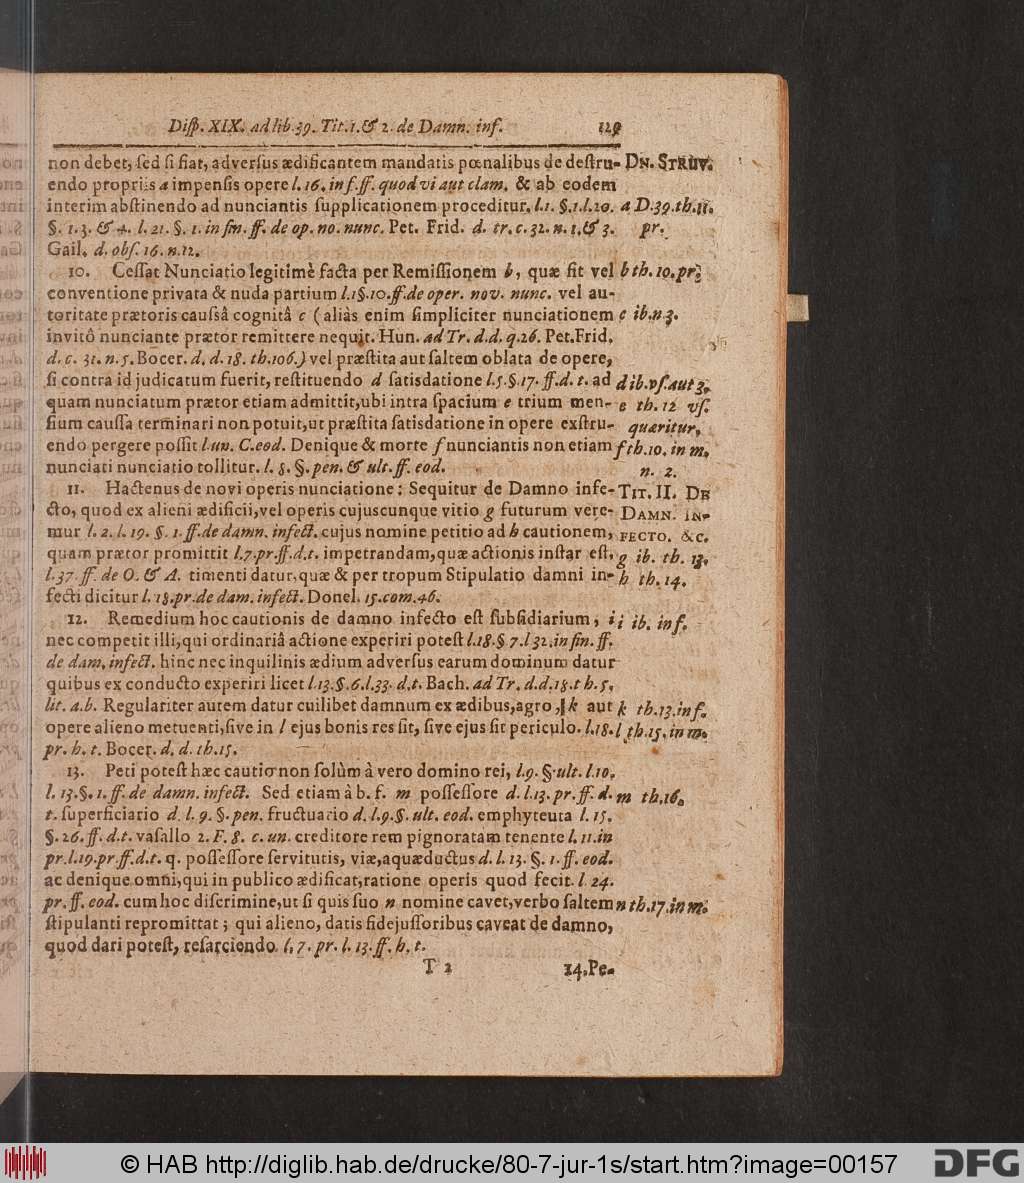 Disp. XIX. ad lib. 39. Tit. 1. & 2. de Damn. inf. 129
non debet, sed si fiat, adversus ædificantem mandatis pœnalibus de destru- DN. STRUV.
endo propriis a impensis opere l. 16. in f. ff. quod vi aut clam. & ab eodem
interim abstinendo ad nunciantis supplicationem proceditur. l. 1. §. 1. l. 20. a D. 39. th. 11.
§. 1. 3. & 4. l. 21. §. 1. in fin. ff. de op. no. nunc. Pet. Frid. d. tr. c. 32. n. 1. & 3. pr.
Gail. d. obs. 16. n. 12.
10. Cessat Nunciatio legitimè facta per Remissionem b, quæ fit vel b th. 10. pr.
conventione privata & nuda partium l. 1 §. 10. ff. de oper. nov. nunc. vel au-
toritate prætoris caussâ cognitâ c (aliàs enim simpliciter nunciationem c ib. n. 3.
invitô nunciante prætor remittere nequit. Hun. ad Tr. d. d. q. 26. Pet. Frid.
d. c. 31. n. 5. Bocer. d. d. 18. th. 106.) vel præstita aut saltem oblata de opere,
si contra id judicatum fuerit, restituendo d satisdatione l. 5. §. 17. ff. d. t. ad d ib. vs. aut 3.
quam nunciatum prætor etiam admittit, ubi intra spacium e trium men- e th. 12 vs.
sium caussa terminari non potuit, ut præstita satisdatione in opere exstru- quæritur.
endo pergere possit l. un. C. eod. Denique & morte f nunciantis non etiam f th. 10. in m.
nunciati nunciatio tollitur. l. 8. §. pen. & ult. ff. eod. n. 2.
11. Hactenus de novi operis nunciatione: Sequitur de Damno infe- TIT. II. DE
cto, quod ex alieni ædificii, vel operis cujuscunque vitio g futurum vere- DAMN. IN-
mur l. 2. l. 19. §. 1. ff. de damn. infect. cujus nomine petitio ad h cautionem, FECTO. &c.
quam prætor promittit l. 7. pr. ff. d. t. impetrandam, quæ actionis instar est, g ib. th. 13.
l. 37. ff. de O. & A. timenti datur, quæ & per tropum Stipulatio damni in- h th. 14.
fecti dicitur l. 18. pr. de dam. infect. Donel. 15. com. 46.
12. Remedium hoc cautionis de damno infecto est subsidiarium, i i ib. inf.
nec competit illi, qui ordinariâ actione experiri potest l. 18. § 7. l 32. in fin. ff.
de dam. infect. hinc nec inquilinis ædium adversus earum dominum datur
quibus ex conducto experiri licet l. 13. §. 6. l. 33. d. t. Bach. ad Tr. d. d. 18. th. 5.
lit. a. b. Regulariter autem datur cuilibet damnum ex ædibus, agro, k aut k th. 13. inf.
opere alieno metuenti, sive in l ejus bonis res sit, sive ejus sit periculo. l. 18. l th. 15. in m.
pr. h. t. Bocer. d. d. th. 15.
13. Peti potest hæc cautio non solùm à vero domino rei, l. 9. §. ult. l. 10.
l. 13. §. 1. ff. de damn. infect. Sed etiam à b. f. m possessore d. l. 13. pr. ff. d. m th. 16.
t. superficiario d. l. 9. §. pen. fructuario d. l. 9. §. ult. eod. emphyteuta l. 15.
§. 26. ff. d. t. vasallo 2. F. 8. c. un. creditore rem pignoratam tenente l. 11. in
pr. l. 19. pr ff. d. t. q. possessore servitutis, viæ, aquæductus d. l. 13. §. 1. ff. eod.
ac denique omni, qui in publico ædificat, ratione operis quod fecit. l 24.
pr. ff. eod. cum hoc discrimine, ut si quis suo n nomine cavet, verbo saltem n th. 17. in m.
stipulanti repromittat; qui alieno, datis fidejussoribus caveat de damno,
quod dari potest, resarciendo. l. 7. pr. l. 13. ff. h. t.
T 2 14. Pe-
© HAB http://diglib.hab.de/drucke/80-7-jur-1s/start.htm?image=00157 DFG